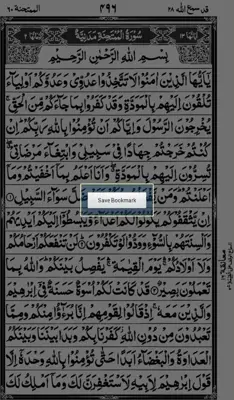 قد سمع الله ٢٨
٤٩٦
الممتحنة ٦٠
سُوْرَةُ الْمُمْتَحِنَةِ مَدَنِيَّةٌ
بِسْمِ اللّٰهِ الرَّحْمٰنِ الرَّحِيْمِ
يٰۤاَيُّهَا الَّذِيْنَ اٰمَنُوْا لَا تَتَّخِذُوْا عَدُوِّيْ وَعَدُوَّكُمْ اَوْلِيَآءَ
تُلْقُوْنَ اِلَيْهِمْ بِالْمَوَدَّةِ وَقَدْ كَفَرُوْا بِمَا جَآءَكُمْ مِّنَ الْحَقِّ
يُخْرِجُوْنَ الرَّسُوْلَ وَاِيَّاكُمْ اَنْ تُؤْمِنُوْا بِاللّٰهِ رَبِّكُمْ اِنْ
كُنْتُمْ خَرَجْتُمْ جِهَادًا فِيْ سَبِيْلِيْ وَابْتِغَآءَ مَرْضَاتِيْ
تُسِرُّوْنَ اِلَيْهِمْ بِالْمَوَدَّةِ وَاَنَا اَعْلَمُ بِمَاۤ اَخْفَيْتُمْ وَمَاۤ
اَعْلَنْتُمْ وَمَنْ سَوَآءَ السَّبِيْلِ ①
Save Bookmark
اِنْ يَّثْقَفُوْكُمْ يَكُوْنُوْا لَكُمْ اَعْدَآءً وَّيَبْسُطُوْۤا اِلَيْكُمْ اَيْدِيَهُمْ
وَاَلْسِنَتَهُمْ بِالسُّوْٓءِ وَوَدُّوْا لَوْ تَكْفُرُوْنَ ② لَنْ تَنْفَعَكُمْ اَرْحَامُكُمْ
وَلَاۤ اَوْلَادُكُمْ يَوْمَ الْقِيٰمَةِ يَفْصِلُ بَيْنَكُمْ وَاللّٰهُ بِمَا
تَعْمَلُوْنَ بَصِيْرٌ ③ قَدْ كَانَتْ لَكُمْ اُسْوَةٌ حَسَنَةٌ فِيْۤ اِبْرٰهِيْمَ
وَالَّذِيْنَ مَعَهٗ اِذْ قَالُوْا لِقَوْمِهِمْ اِنَّا بُرَءٰۤؤُا مِنْكُمْ وَمِمَّا
تَعْبُدُوْنَ مِنْ دُوْنِ اللّٰهِ كَفَرْنَا بِكُمْ وَبَدَا بَيْنَنَا وَبَيْنَكُمُ
الْعَدَاوَةُ وَالْبَغْضَآءُ اَبَدًا حَتّٰى تُؤْمِنُوْا بِاللّٰهِ وَحْدَهٗۤ اِلَّا
قَوْلَ اِبْرٰهِيْمَ لِاَبِيْهِ لَاَسْتَغْفِرَنَّ لَكَ وَمَاۤ اَمْلِكُ لَكَ